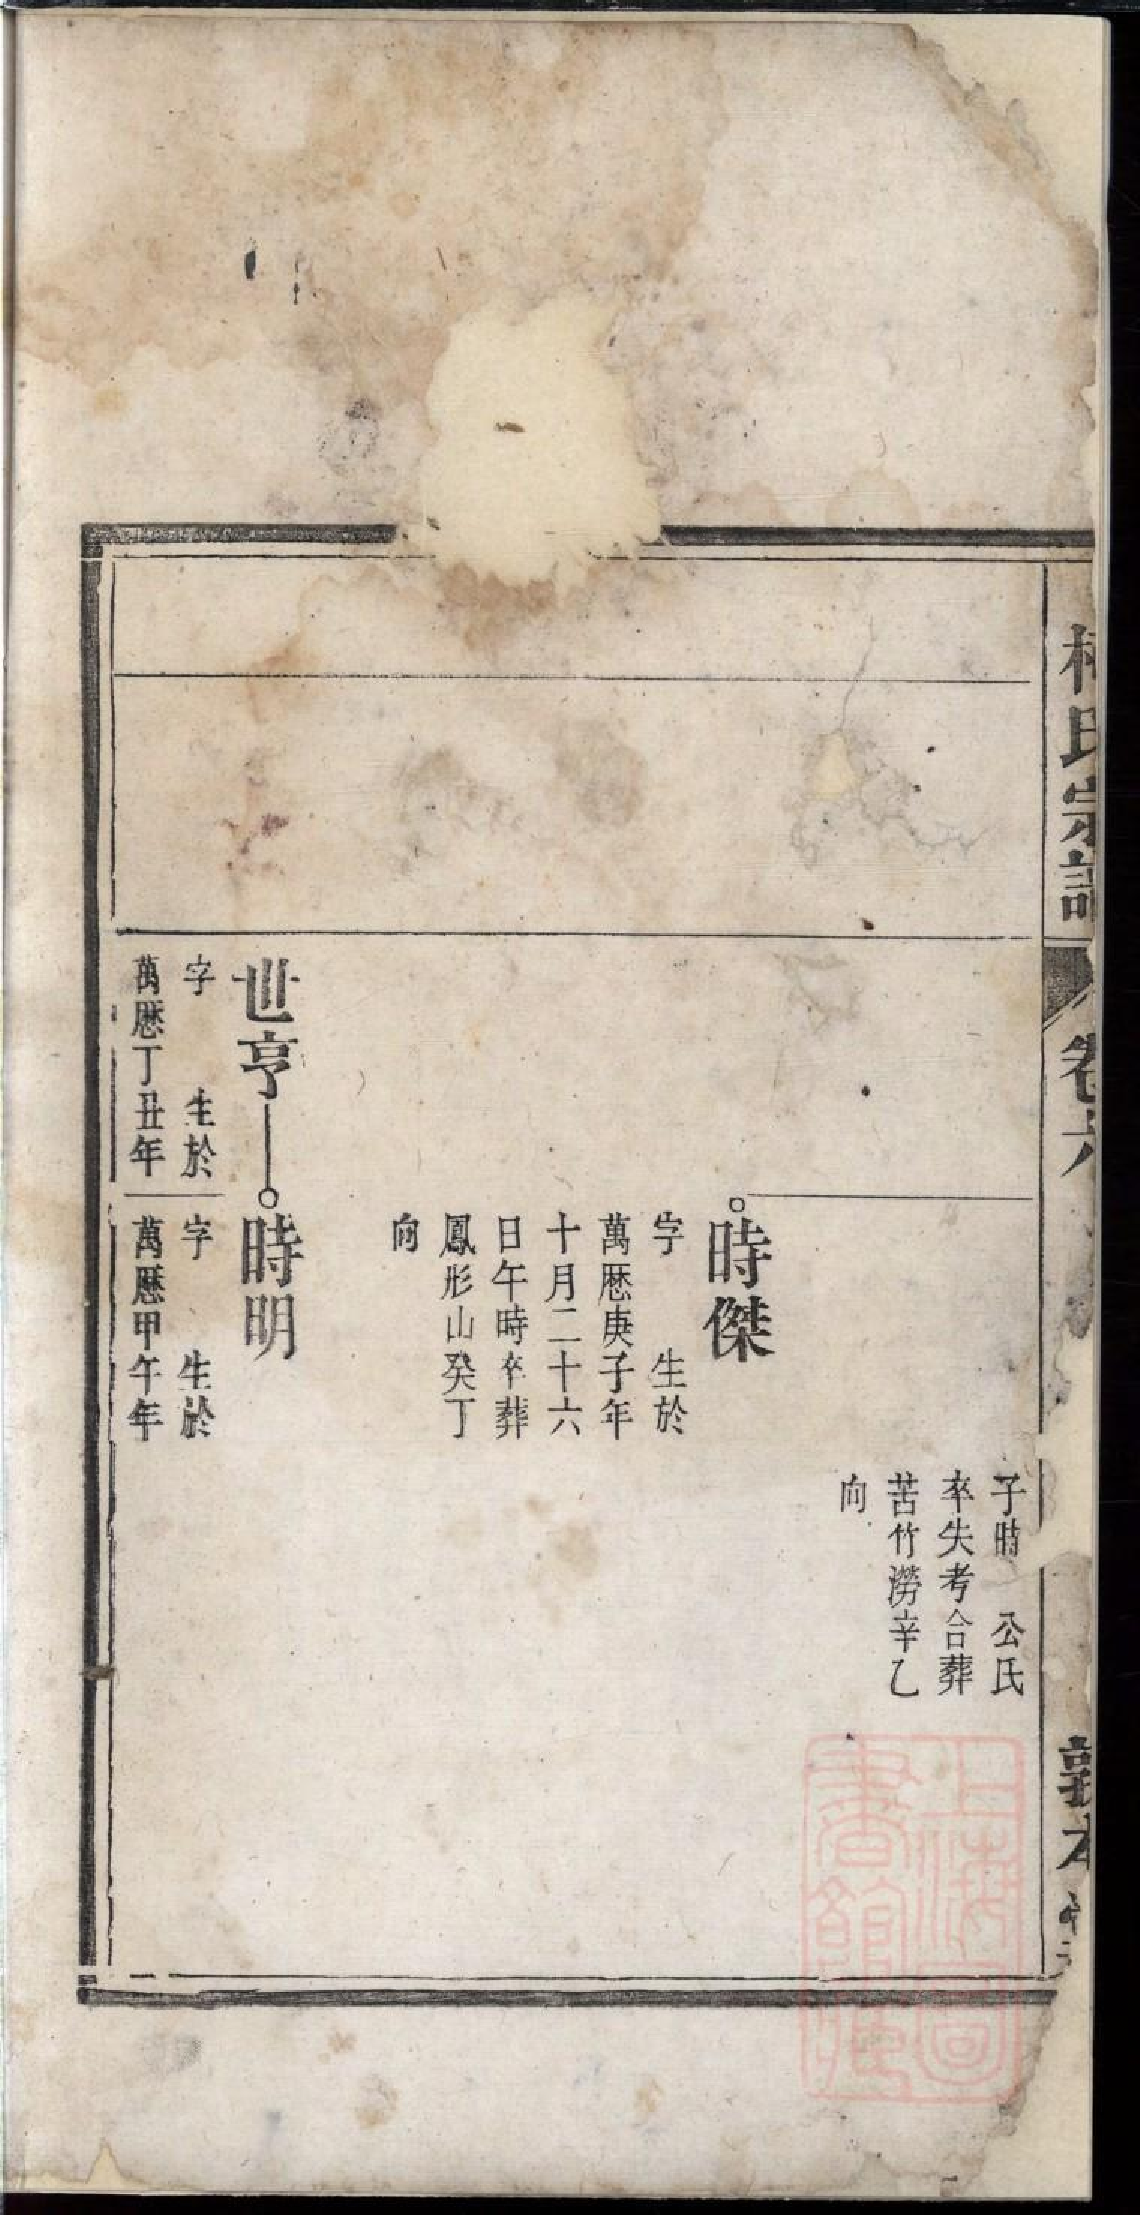 氏宗譜
卷六
敦本堂
子時　公氏
卒失考合葬
苦竹澇辛乙
向
時傑
字　生於
萬歷庚子年
十月二十六
日午時卒葬
鳳形山癸丁
向
世亨
時明
字　生於
萬歷丁丑年
字　生於
萬歷甲午年
上海圖書館藏